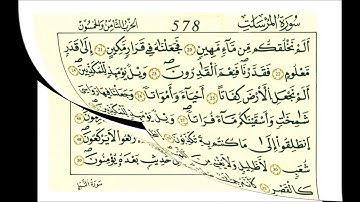 سُورَةُ المُرْسَلَاتِ 578 الحزب الثامن والخمسون
أَلَمْ نَخْلُقكُّم مِّن مَّآءٍ مَّهِينٍ ۝٢٠ فَجَعَلْنَٰهُ فِى قَرَارٍ مَّكِينٍ ۝٢١ إِلَىٰ قَدَرٍ
مَّعْلُومٍ ۝٢٢ فَقَدَرْنَا فَنِعْمَ ٱلْقَٰدِرُونَ ۝٢٣ وَيْلٌ يَوْمَئِذٍ لِّلْمُكَذِّبِينَ
أَلَمْ نَجْعَلِ ٱلْأَرْضَ كِفَاتًا ۝٢٥ أَحْيَآءً وَأَمْوَٰتًا ۝٢٦ وَجَعَلْنَا فِيهَا
شَٰمِخَٰتٍ وَأَسْقَيْنَٰكُم مَّآءً فُرَاتًا ۝٢٧ وَيْلٌ يَوْمَئِذٍ
ٱنطَلِقُوٓا۟ إِلَىٰ مَا كُنتُم بِهِۦ تُكَذِّبُونَ لَا يَرْكَعُونَ
شُعَبٍ ۝٣٠ لَّا ظَلِيلٍ وَلَا يُغْنِى حَدِيثٍۭ بَعْدَهُۥ يُؤْمِنُونَ
كَٱلْقَصْرِ
سورة النبإ